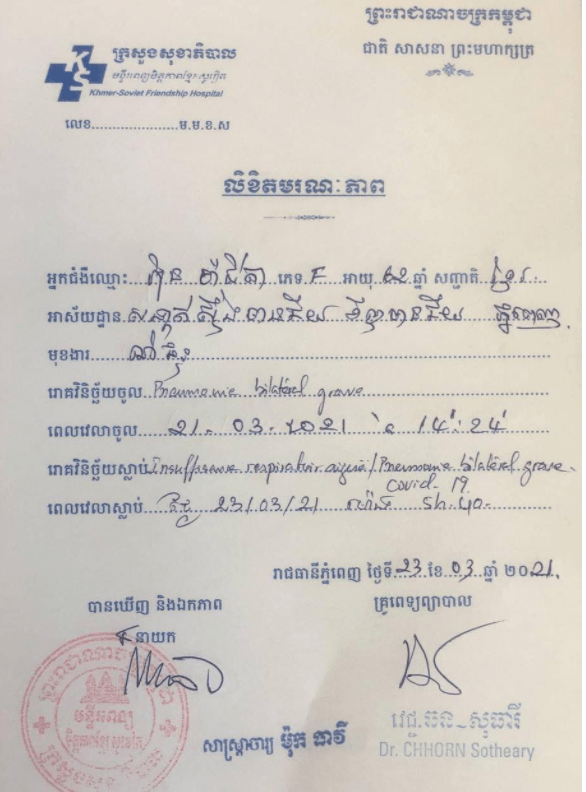 ព្រះរាជាណាចក្រកម្ពុជា
ជាតិ សាសនា ព្រះមហាក្សត្រ
ក្រសួងសុខាភិបាល
មន្ទីរពេទ្យមិត្តភាពខ្មែរ សូវៀត
KS
Khmer-Soviet Friendship Hospital
លេខ......................ម.ម.ខ.ស
លិខិតមរណៈភាព
អ្នកជំងឺឈ្មោះ ភេទ F អាយុ ឆ្នាំ សញ្ជាតិ ខ្មែរ
អាស័យដ្ឋាន សង្កាត់ស្ទឹងមានជ័យ មានជ័យ ភ្នំពេញ
មុខងារ
រោគវិនិច្ឆ័យចូល Pneumonie bilatéral grave
ពេលវេលាចូល 21. 03. 2021 14:24
រោគវិនិច្ឆ័យស្លាប់ respiratoir / Pneumonie bilatéral grave
covid-19
ពេលវេលាស្លាប់ ថ្ងៃ 23/03/21 ម៉ោង 5h:40
រាជធានីភ្នំពេញ ថ្ងៃទី 23 ខែ 03 ឆ្នាំ ២០21
បានឃើញ និងឯកភាព
គ្រូពេទ្យព្យាបាល
នាយក
មន្ទីរពេទ្យ
សាស្ត្រាចារ្យ ម៉ុក ធាវី
វេជ្ជ. ឆន សុធារី
Dr. CHHORN Sotheary